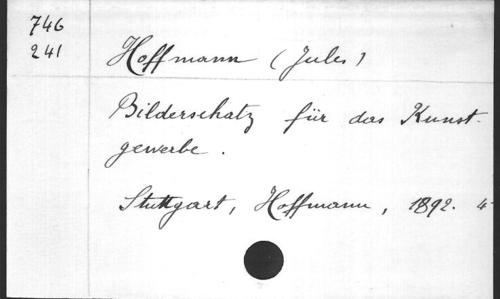 746
241
Hoffmann (Jules)
Bilderschatz für das Kunst-
gewerbe.
Stuttgart, Hoffmann, 1892. 4